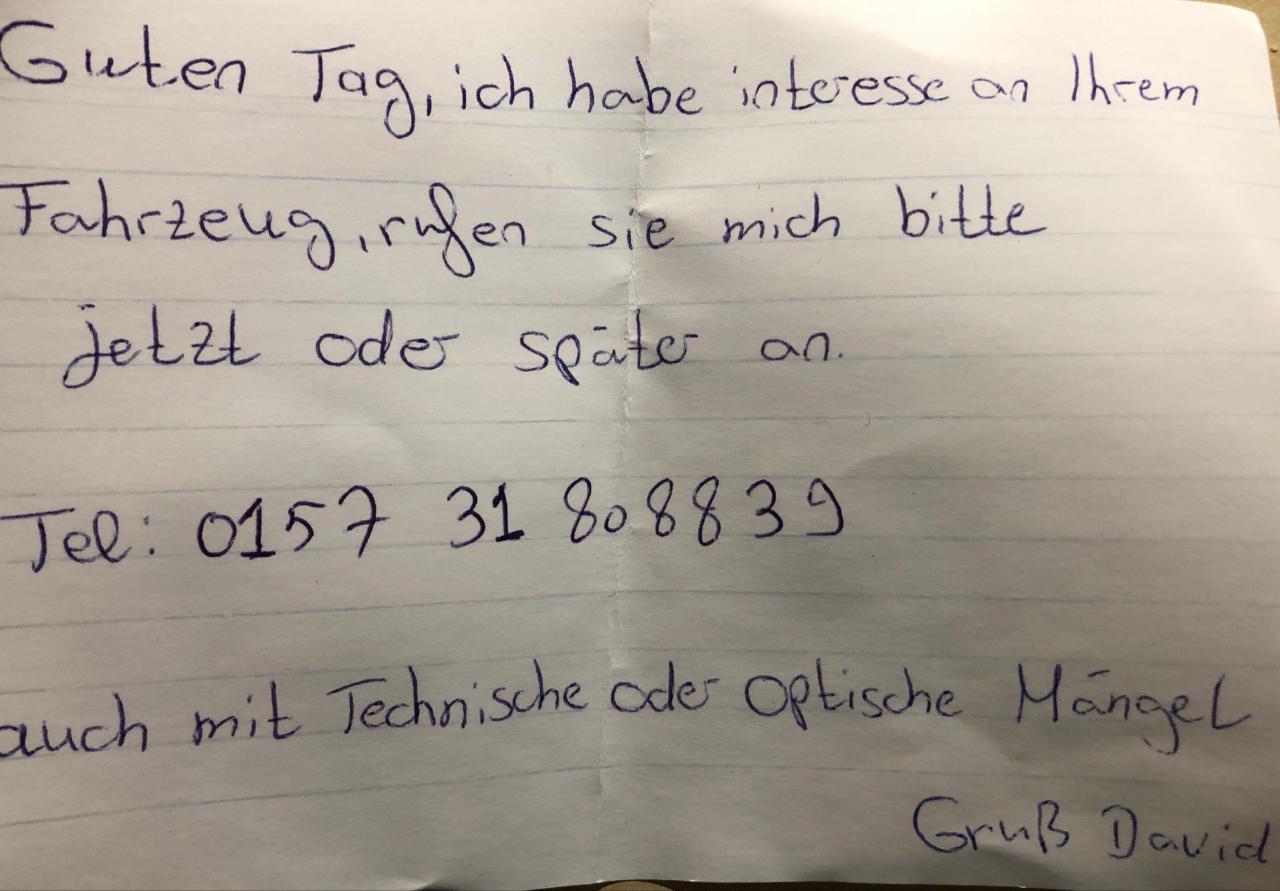 Guten Tag, ich habe interesse an Ihrem
Fahrzeug, rufen sie mich bitte
jetzt oder später an.
Tel: 0157 31 808839
auch mit Technische oder optische Mängel
Gruß David